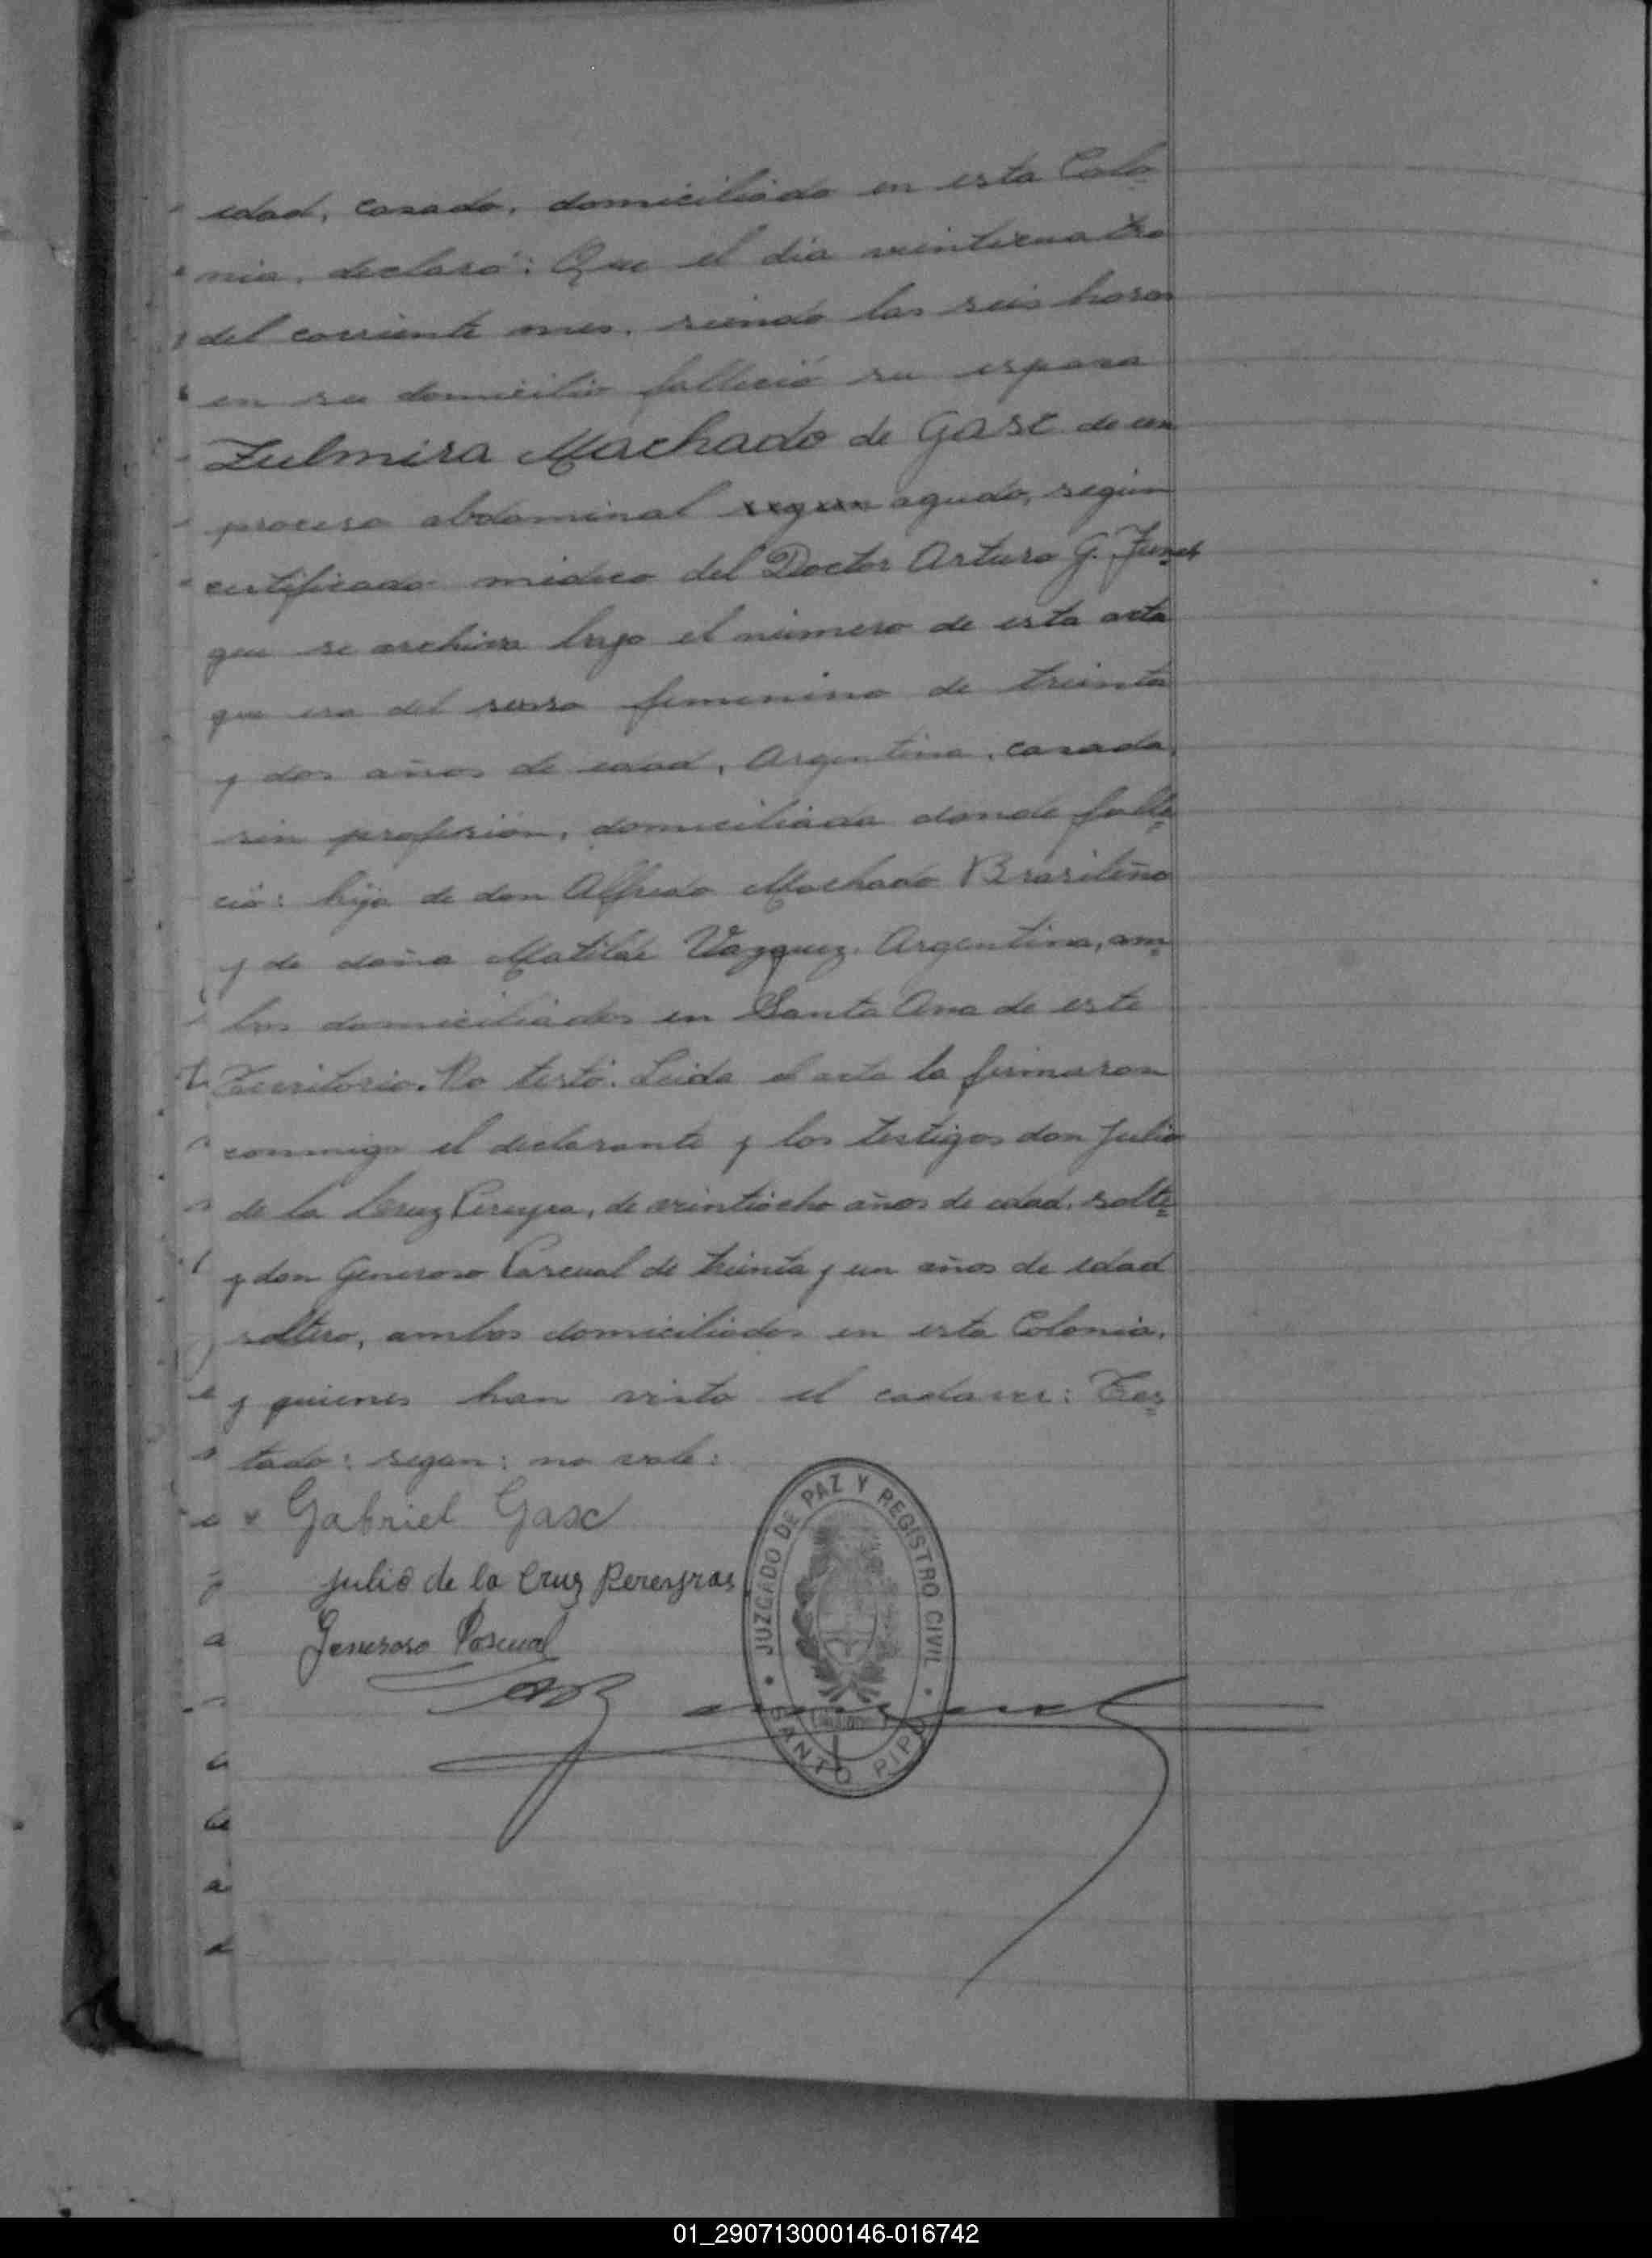 edad, casado, domiciliado en esta Colo
nia, declaró: Que el día veinticuatro
del corriente mes, siendo las seis horas
en su domicilio falleció su esposa
Zulmira Machado de Gasc de un
proceso abdominal segun agudo, según
certificado médico del Doctor Arturo G. Funes
que se archiva bajo el número de esta acta
que era del sexso femenino de treinta
y dos años de edad, Argentina, casada,
sin profesión, domiciliada donde falle=
ció: hija de don Alfredo Machado Brasileño
y de doña Matilde Vazquez, Argentina, am=
bos domiciliados en Santa Ana de este
Territorio. No testó. Leida el acta la firmaron
conmigo el declarante y los testigos don Julio
de la Cruz Pereyra, de veintiocho años de edad, solte=
y don Generoso Pascual de treinta y un años de edad
soltero, ambos domiciliados en esta Colonia,
y quienes han visto el cadaver: Tes=
tado: segun: no vale:
Gabriel Gasc
Julio de la Cruz Pereyras
Generoso Pascual
JUZGADO DE PAZ Y REGISTRO CIVIL
SANTO PIPÓ
01_290713000146-016742